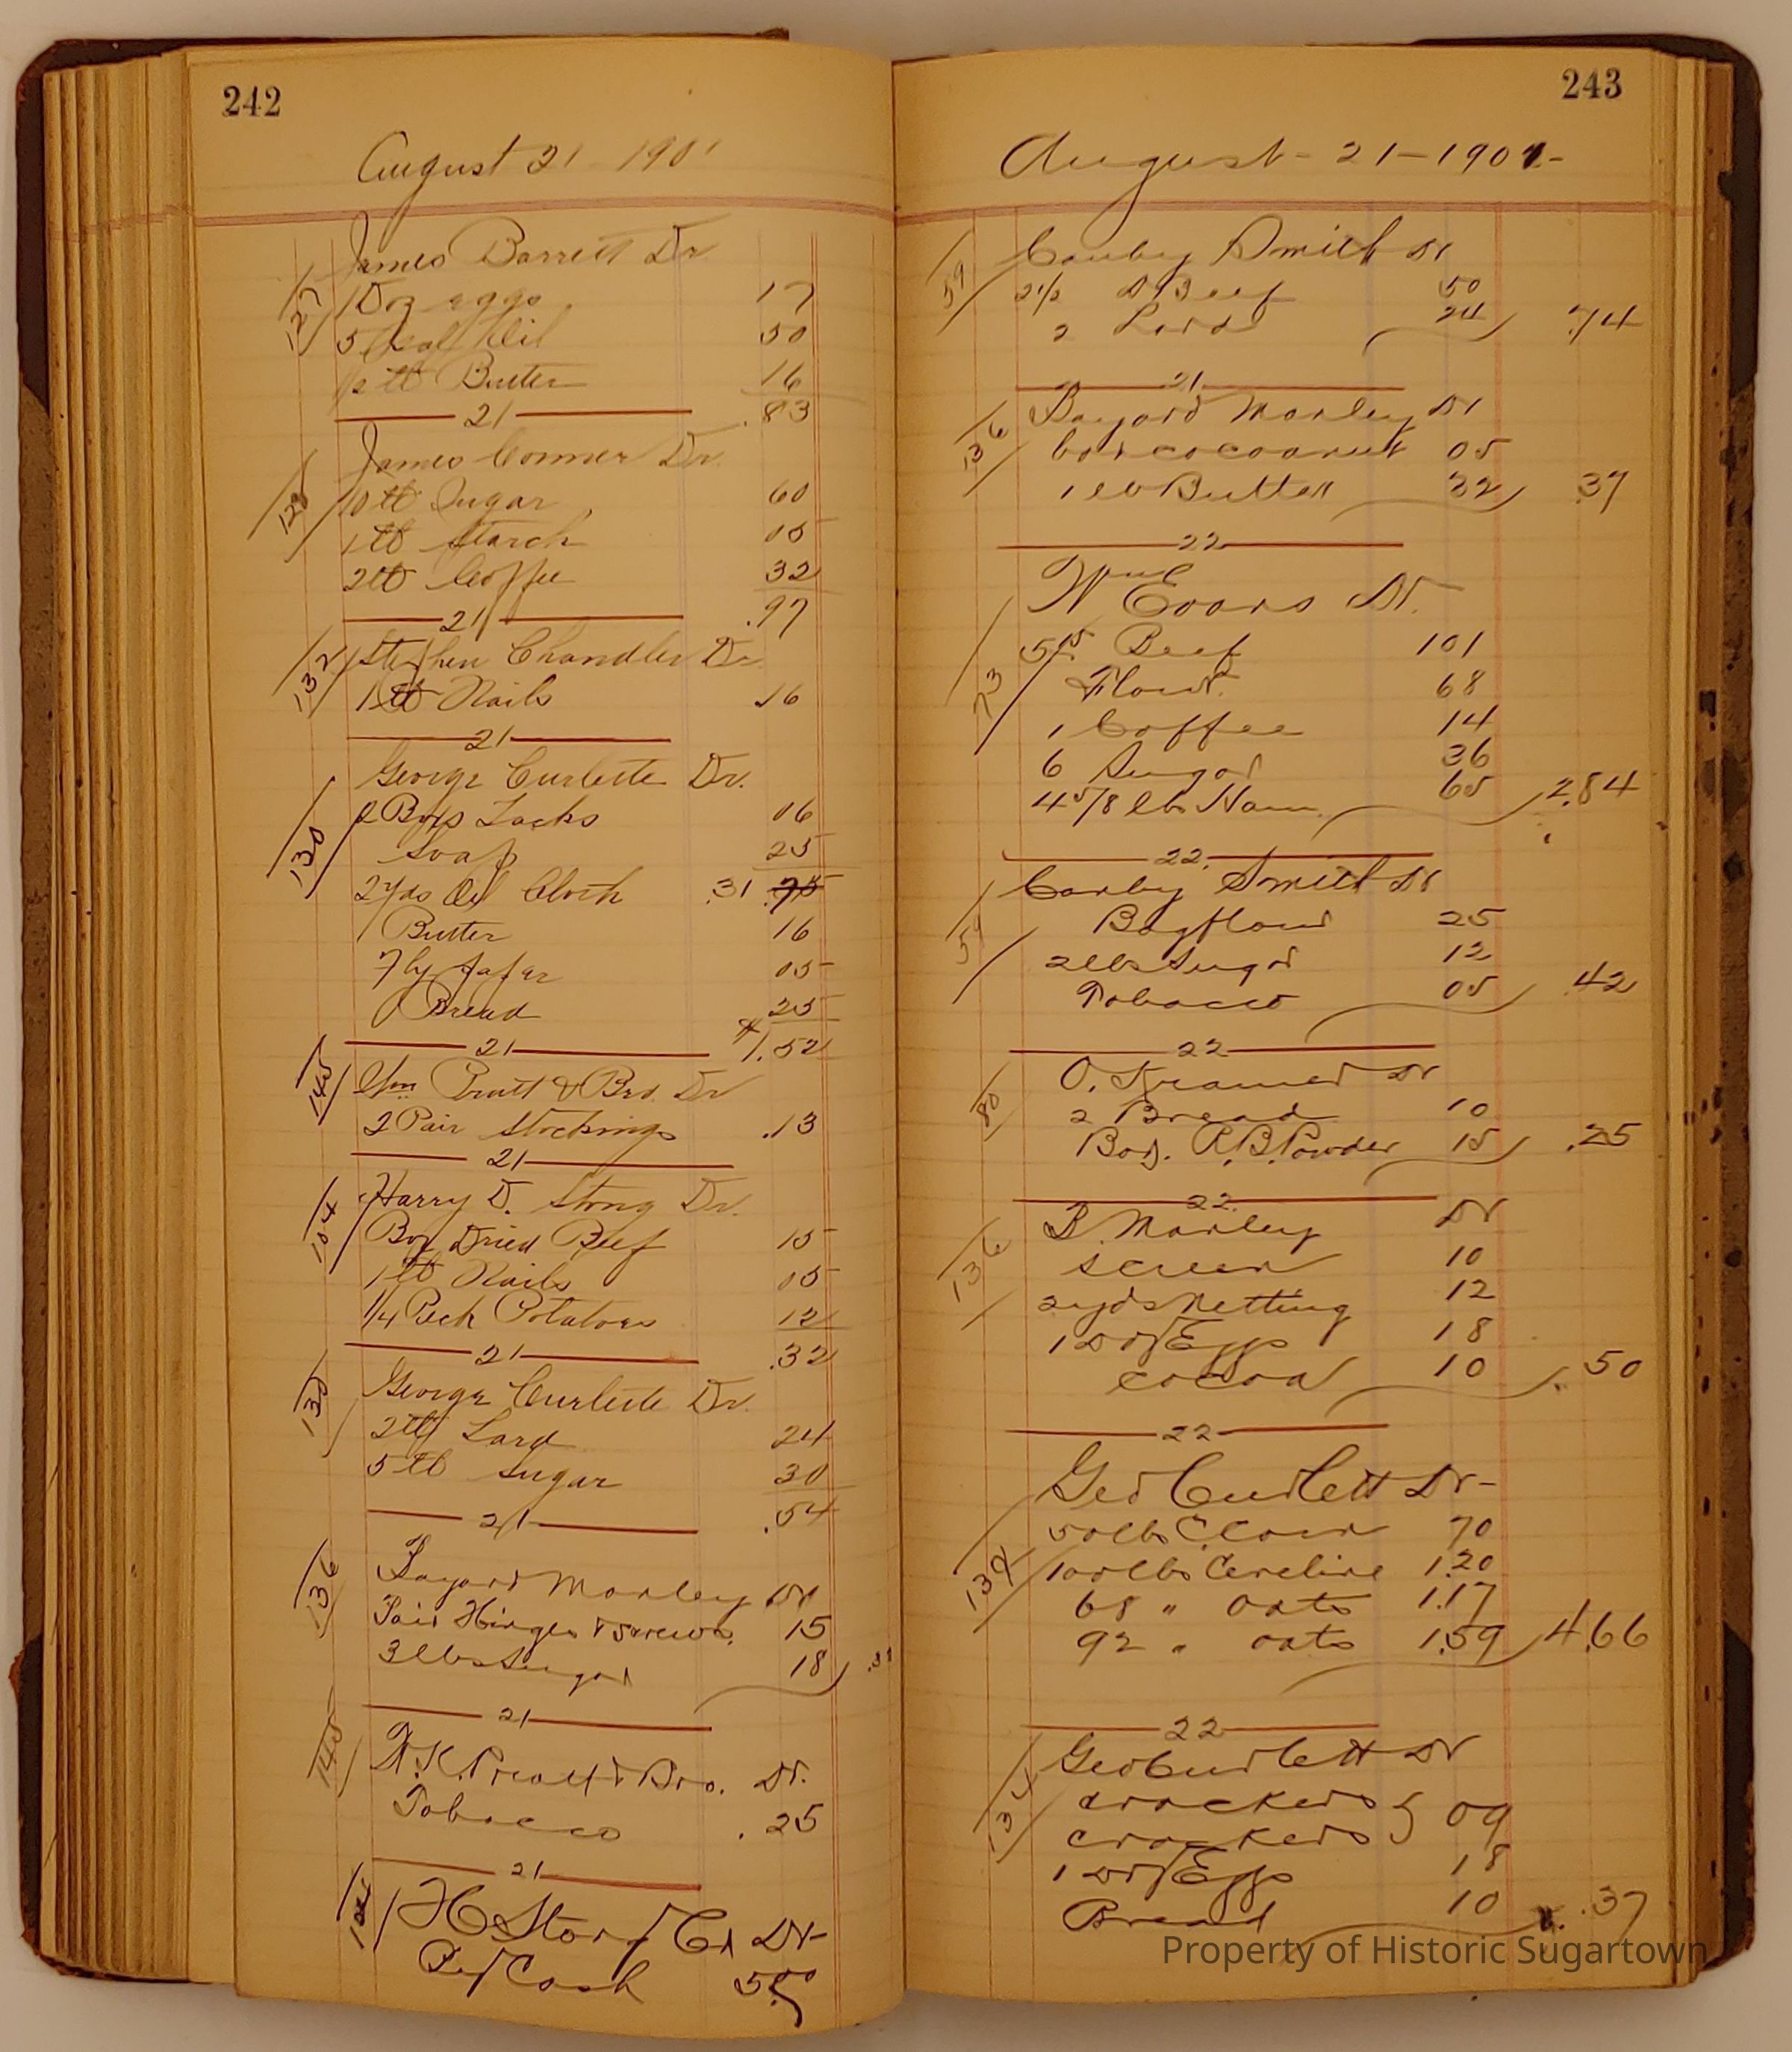 242
August 21 1901
James Barrett Dr
127
1 Doz eggs 17
5 Gal Oil 50
1/2 lb Butter 16
21 .83
James Conner Dr
128
10 lb Sugar 60
1 lb Starch 05
2 lb Coffee 32
21 .97
132 Stephen Chandler Dr
1 lb Nails 16
21
George Curlette Dr.
130
2 Boxs Tacks 06
Soap 25
2 yds Oil Cloth .31 75
Butter 16
7 Fly Paper 05
Bread 25
21 1.52
140 Wm Pruitt & Bro. Dr
2 Pair Stockings .13
21
104 Harry D. Storg Dr.
Box Dried Beef 15
1 lb Nails 05
1/4 Peck Potatoes 12
21 .32
George Curlette Dr.
2 lb Lard 24
5 lb Sugar 30
21 .54
136 Bayard Marley Dr
Pair Hinges & Screws 15
3 lbs Sugar 18
21
140 W.K. Pruitt & Bro. Dr.
Tobacco .25
21
H Storg Cr Dr
By Cash
243
August - 21 - 1901 -
59 Canby Smith Dr
2 1/2 D Beef 50
2 Lard 24 .74
21
136 Bayard Marley Dr
Box cocoanut 05
1 lb Butter 32 .37
22
Wm Evans Dr.
73
Beef 101
Flour 68
1 Coffee 14
6 Sugar 36
4 5/8 lbs Ham 65 2.84
22
Canby Smith Dr
59
Bag flour 25
2 lbs Sugar 12
Tobacco 05 .42
22
O. Kramer Dr
80 2 Bread 10
Box R.B. Powder 15 .25
22
B. Marley Dr
136 Screen 10
2 yds Netting 12
1 Doz Eggs 18
cocoa 10 .50
22
Geo Curlett Dr -
50 lbs Flour 70
134 100 lbs Cereline 1.20
68 " oats 1.17
92 " oats 1.59 4.66
22
Geo Curlett Dr
134 crackers
crackers 09
1 Doz Eggs 18
Bread 10 .37
Property of Historic Sugartown